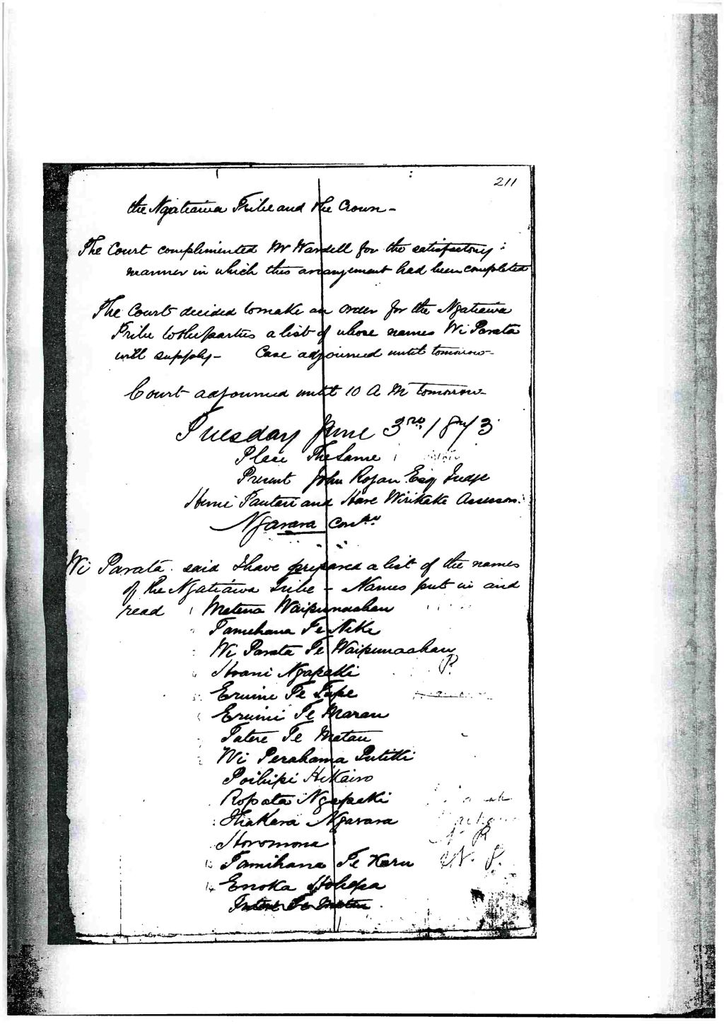 211
the Ngatiawa Tribe and the Crown –
The Court complimented Mr Wardell for the satisfactory
manner in which this arrangement had been completed
The Court decided to make an order for the Ngatiawa
Tribe the parties a list of whose names Wi Parata
will supply – Case adjourned until tomorrow –
Court adjourned until 10 A M tomorrow
Tuesday June 3rd 1873
Place The Same
Present John Rogan Esq Judge
Hemi Tautari and Hare Wirikake Assessors
Ngarara Contd
Wi Parata said I have prepared a list of the names
of the Ngatiawa Tribe – Names put in and
read 1 Metena Waipunaahau
Tamihana Te Neke
Wi Parata Te Waipunaahau
Hoani Ngapaki
Eruini Te Tupe
Eruini Te Marau
Tatere Te Matau
Wi Perahama
Poihipi Hikairo
Ropata Ngapaki
Ihakara Ngarara
Horomona
Tamihana Te Karu
14 Enoka Hohepa